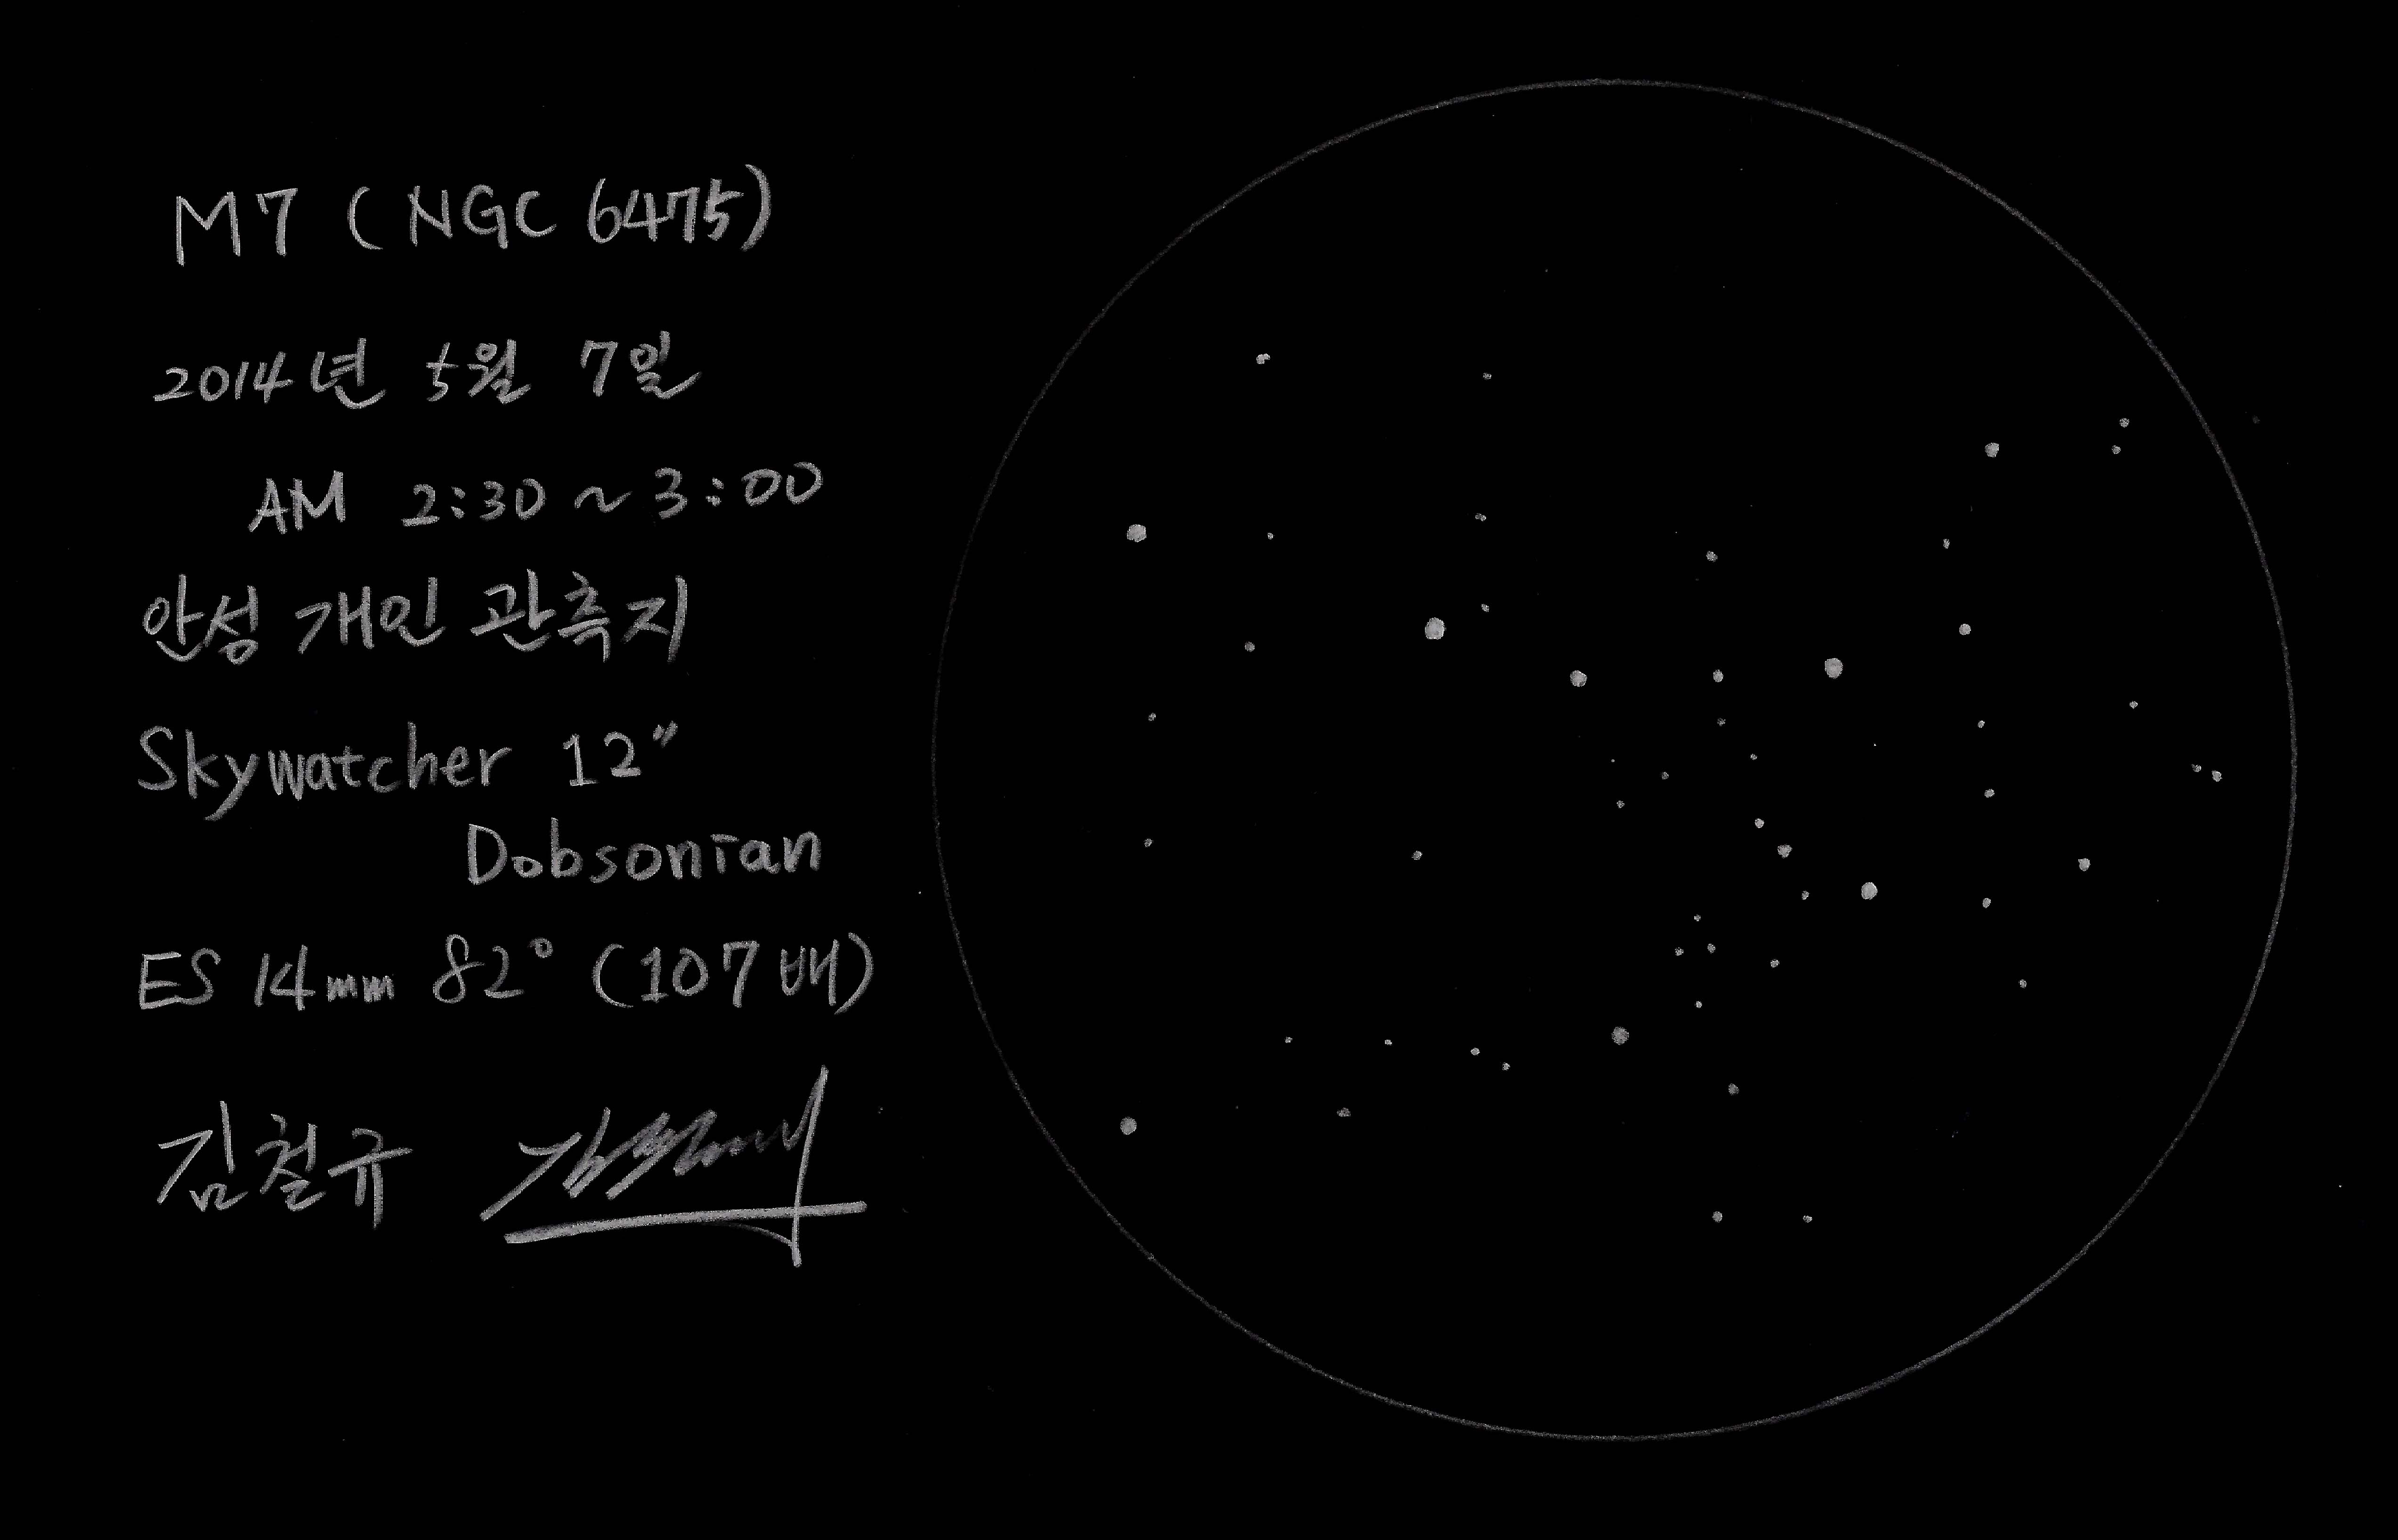 M7 (NGC 6475)
2014년 5월 7일
AM 2:30 ~ 3:00
안성 개인 관측지
Skywatcher 12"
Dobsonian
ES 14mm 82° (107배)
김철규